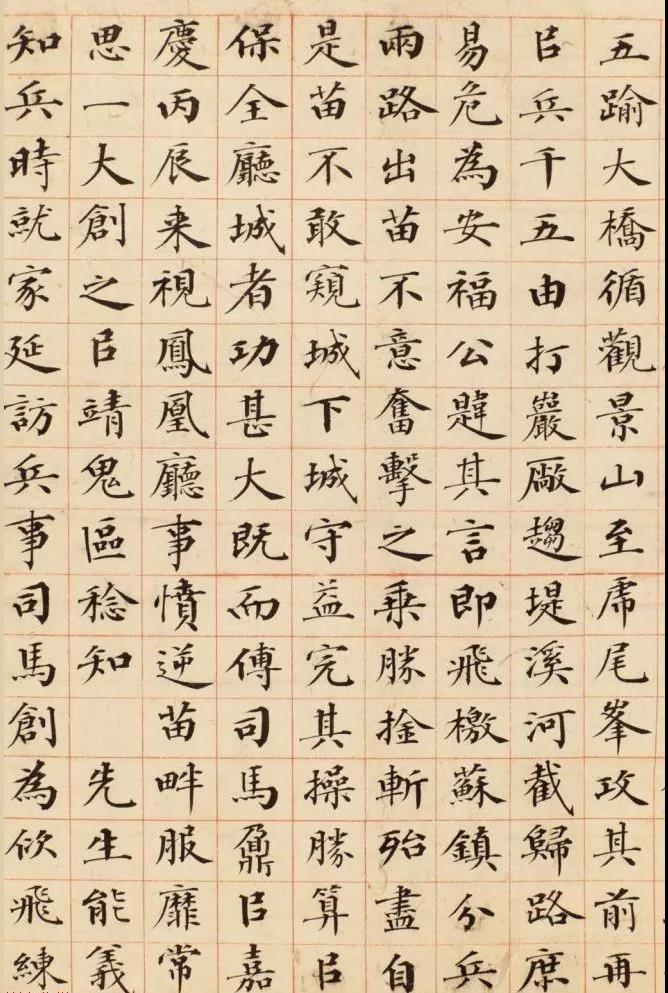 五踰大橋循觀景山至虎尾峯攻其前再
㠯兵千五由打巖厰趨堤溪河截歸路庶
易危為安福公韙其言即飛檄蘇鎮分兵
兩路出苗不意奮擊之乗勝捡斬殆盡自
是苗不敢窺城下城守益完其操勝算㠯
保全廳城者功甚大既而傅司馬鼐㠯嘉
慶丙辰来視鳳凰廳事憤逆苗畔服靡常
思一大創之㠯靖鬼區稔知 先生能義
知兵時就家延訪兵事司馬創為佽飛練